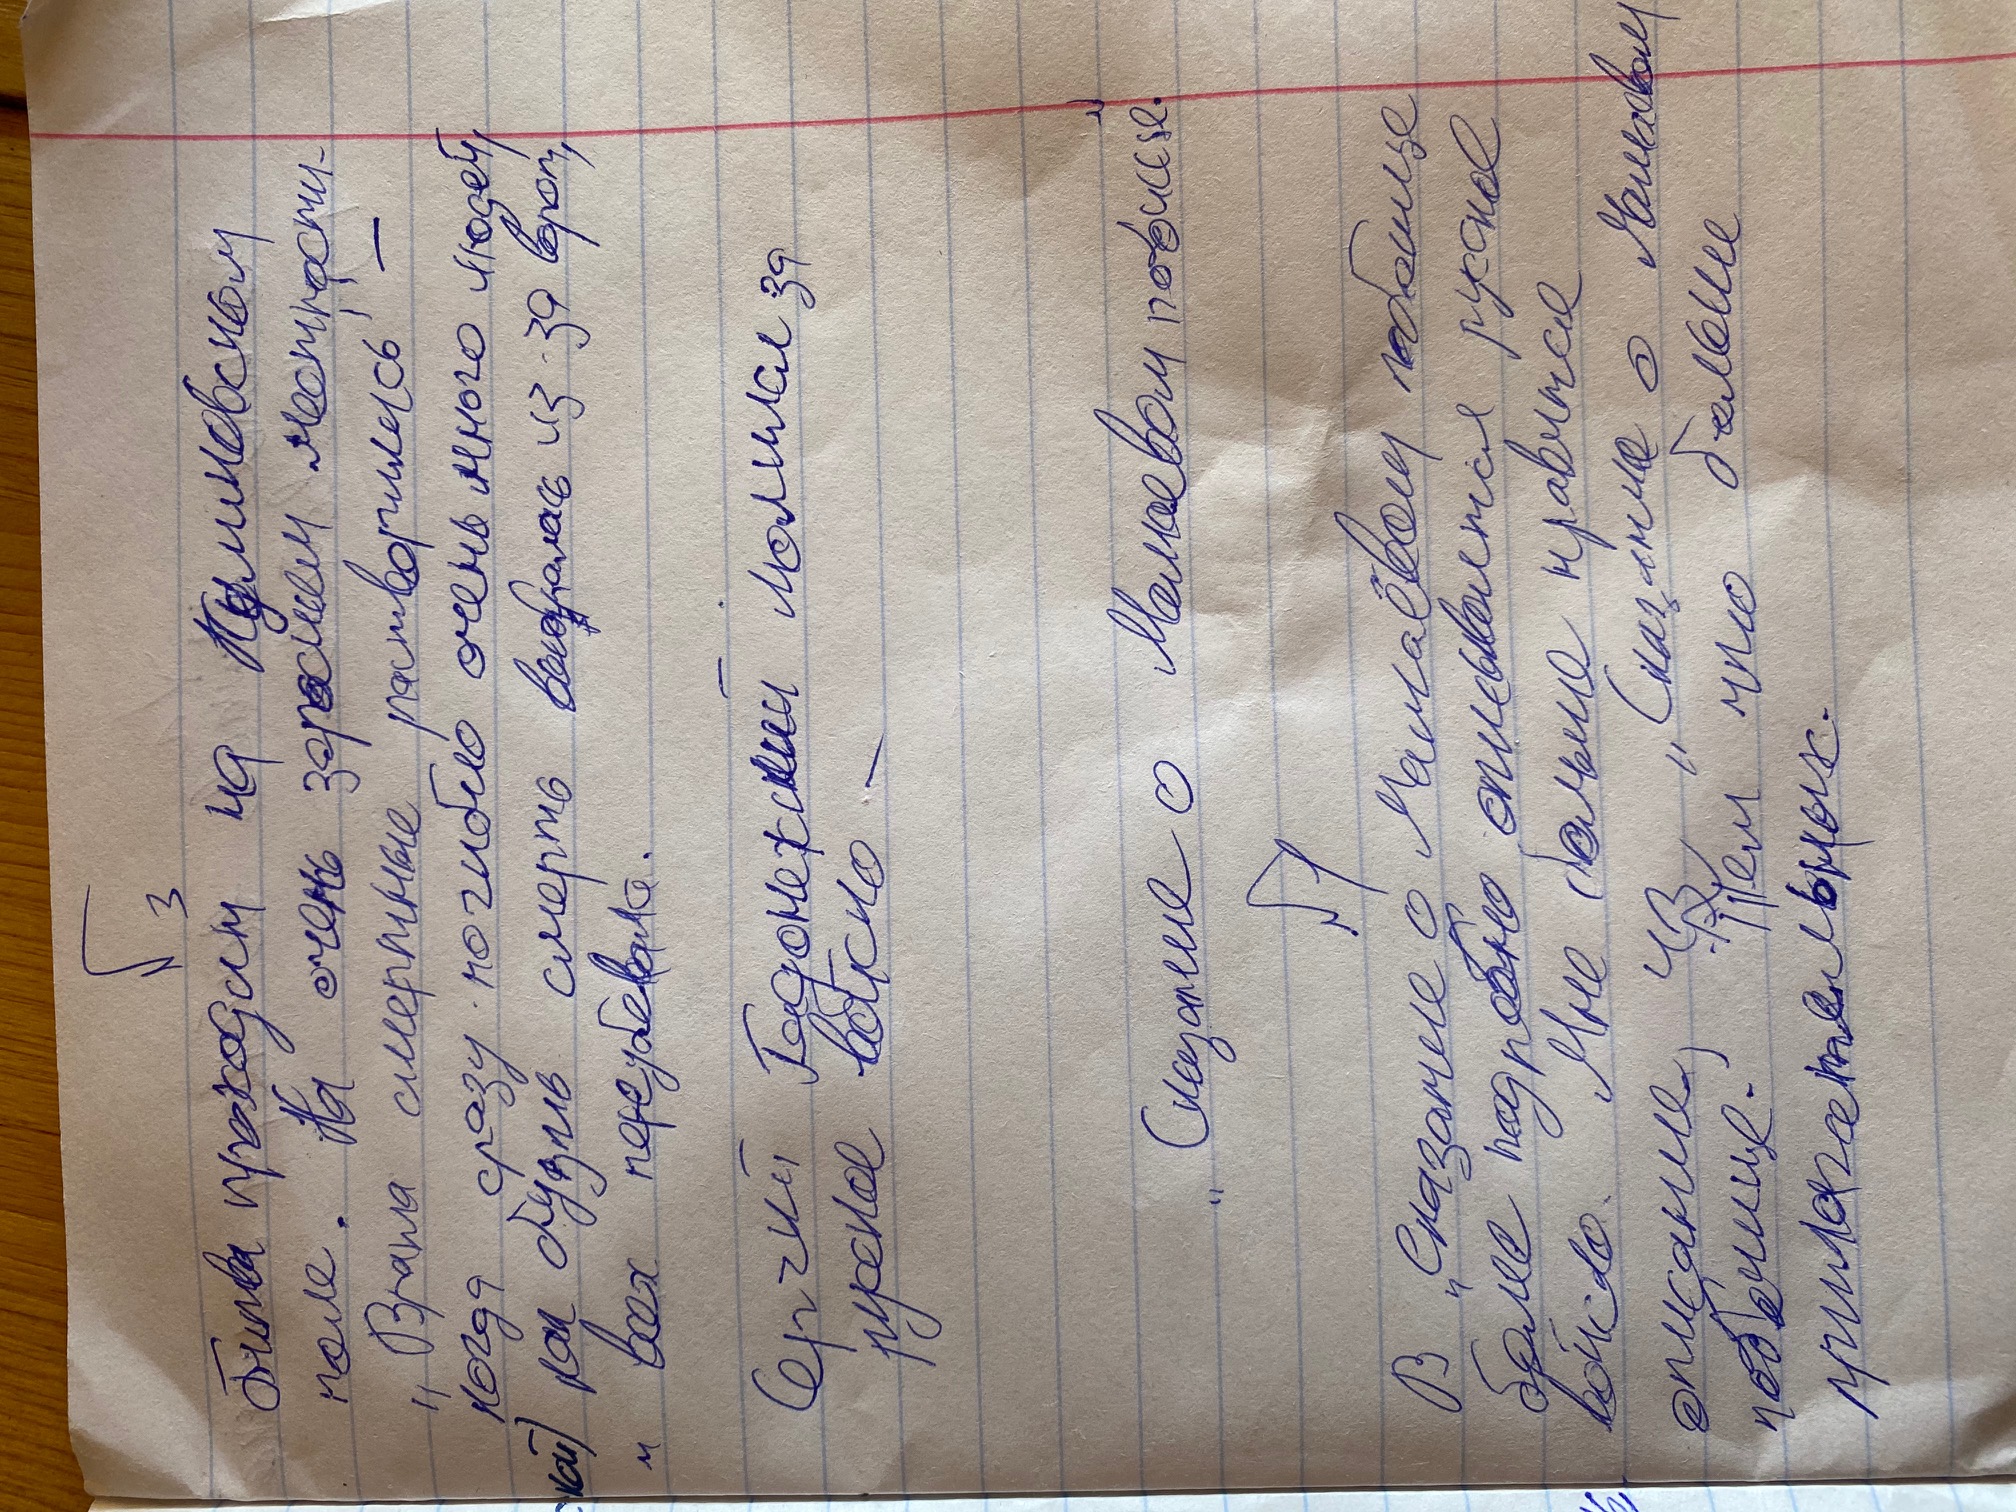 3
Битва проходит на Куликовском
поле. На очень заросшем местрости
"Врата смертные растворились" —
когда сразу погибло очень много людей,
как будто смерть выбралась из-за ворот,
и всех переубевала.
Сергий Радонежский молился за
руское войско —
"Сказание о Мамаевом побоище.
В "Сказание о Мамаевом побоище
более подробно описывается руское
войско. Мне больше нравится
описание, из "Сказание о Мамаевом
побоище. Тем что более
прилагательных.